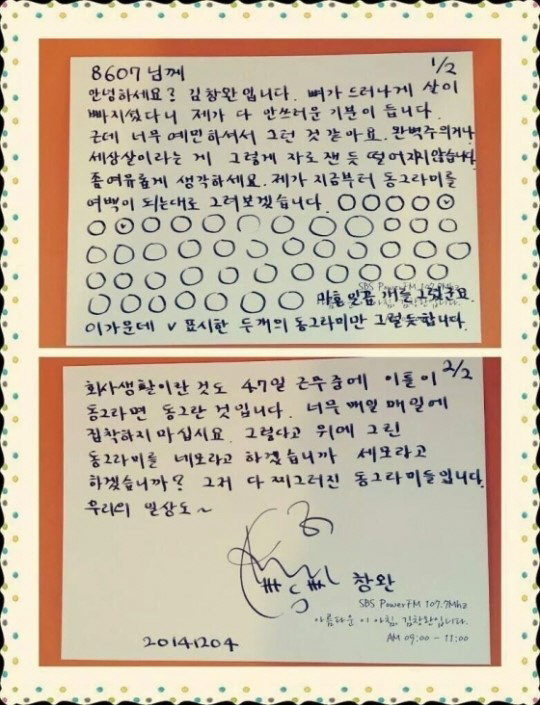 8607님께
1/2
안녕하세요? 김창완입니다. 뼈가 드러나게 살이
빠지셨다니 제가 다 안쓰러운 기분이 듭니다.
근데 너무 예민하셔서 그런 것 같아요. 완벽주의거나
세상살이라는 게 그렇게 자로 잰 듯 떨어지지않습니다.
좀여유롭게 생각하세요. 제가 지금부터 동그라미를
여백이 되는대로 그려보겠습니다.
마흔일곱 개를 그렸군요.
SBS PowerFM 107.7Mhz
이가운데 v 표시한 두개의 동그라미만 그럴듯합니다.
2/2
회사생활이란것도 47일 근무중에 이틀이
동그라면 동그란 것입니다. 너무 매일 매일에
집착하지 마십시요. 그렇다고 위에 그린
동그라미를 네모라고 하겠습니까 세모라고
하겠습니까? 그저 다 찌그러진 동그라미들입니다.
우리의 일상도~
창완
SBS PowerFM 107.7Mhz
아름다운 이 아침, 김창완입니다.
AM 09:00 - 11:00
20141204